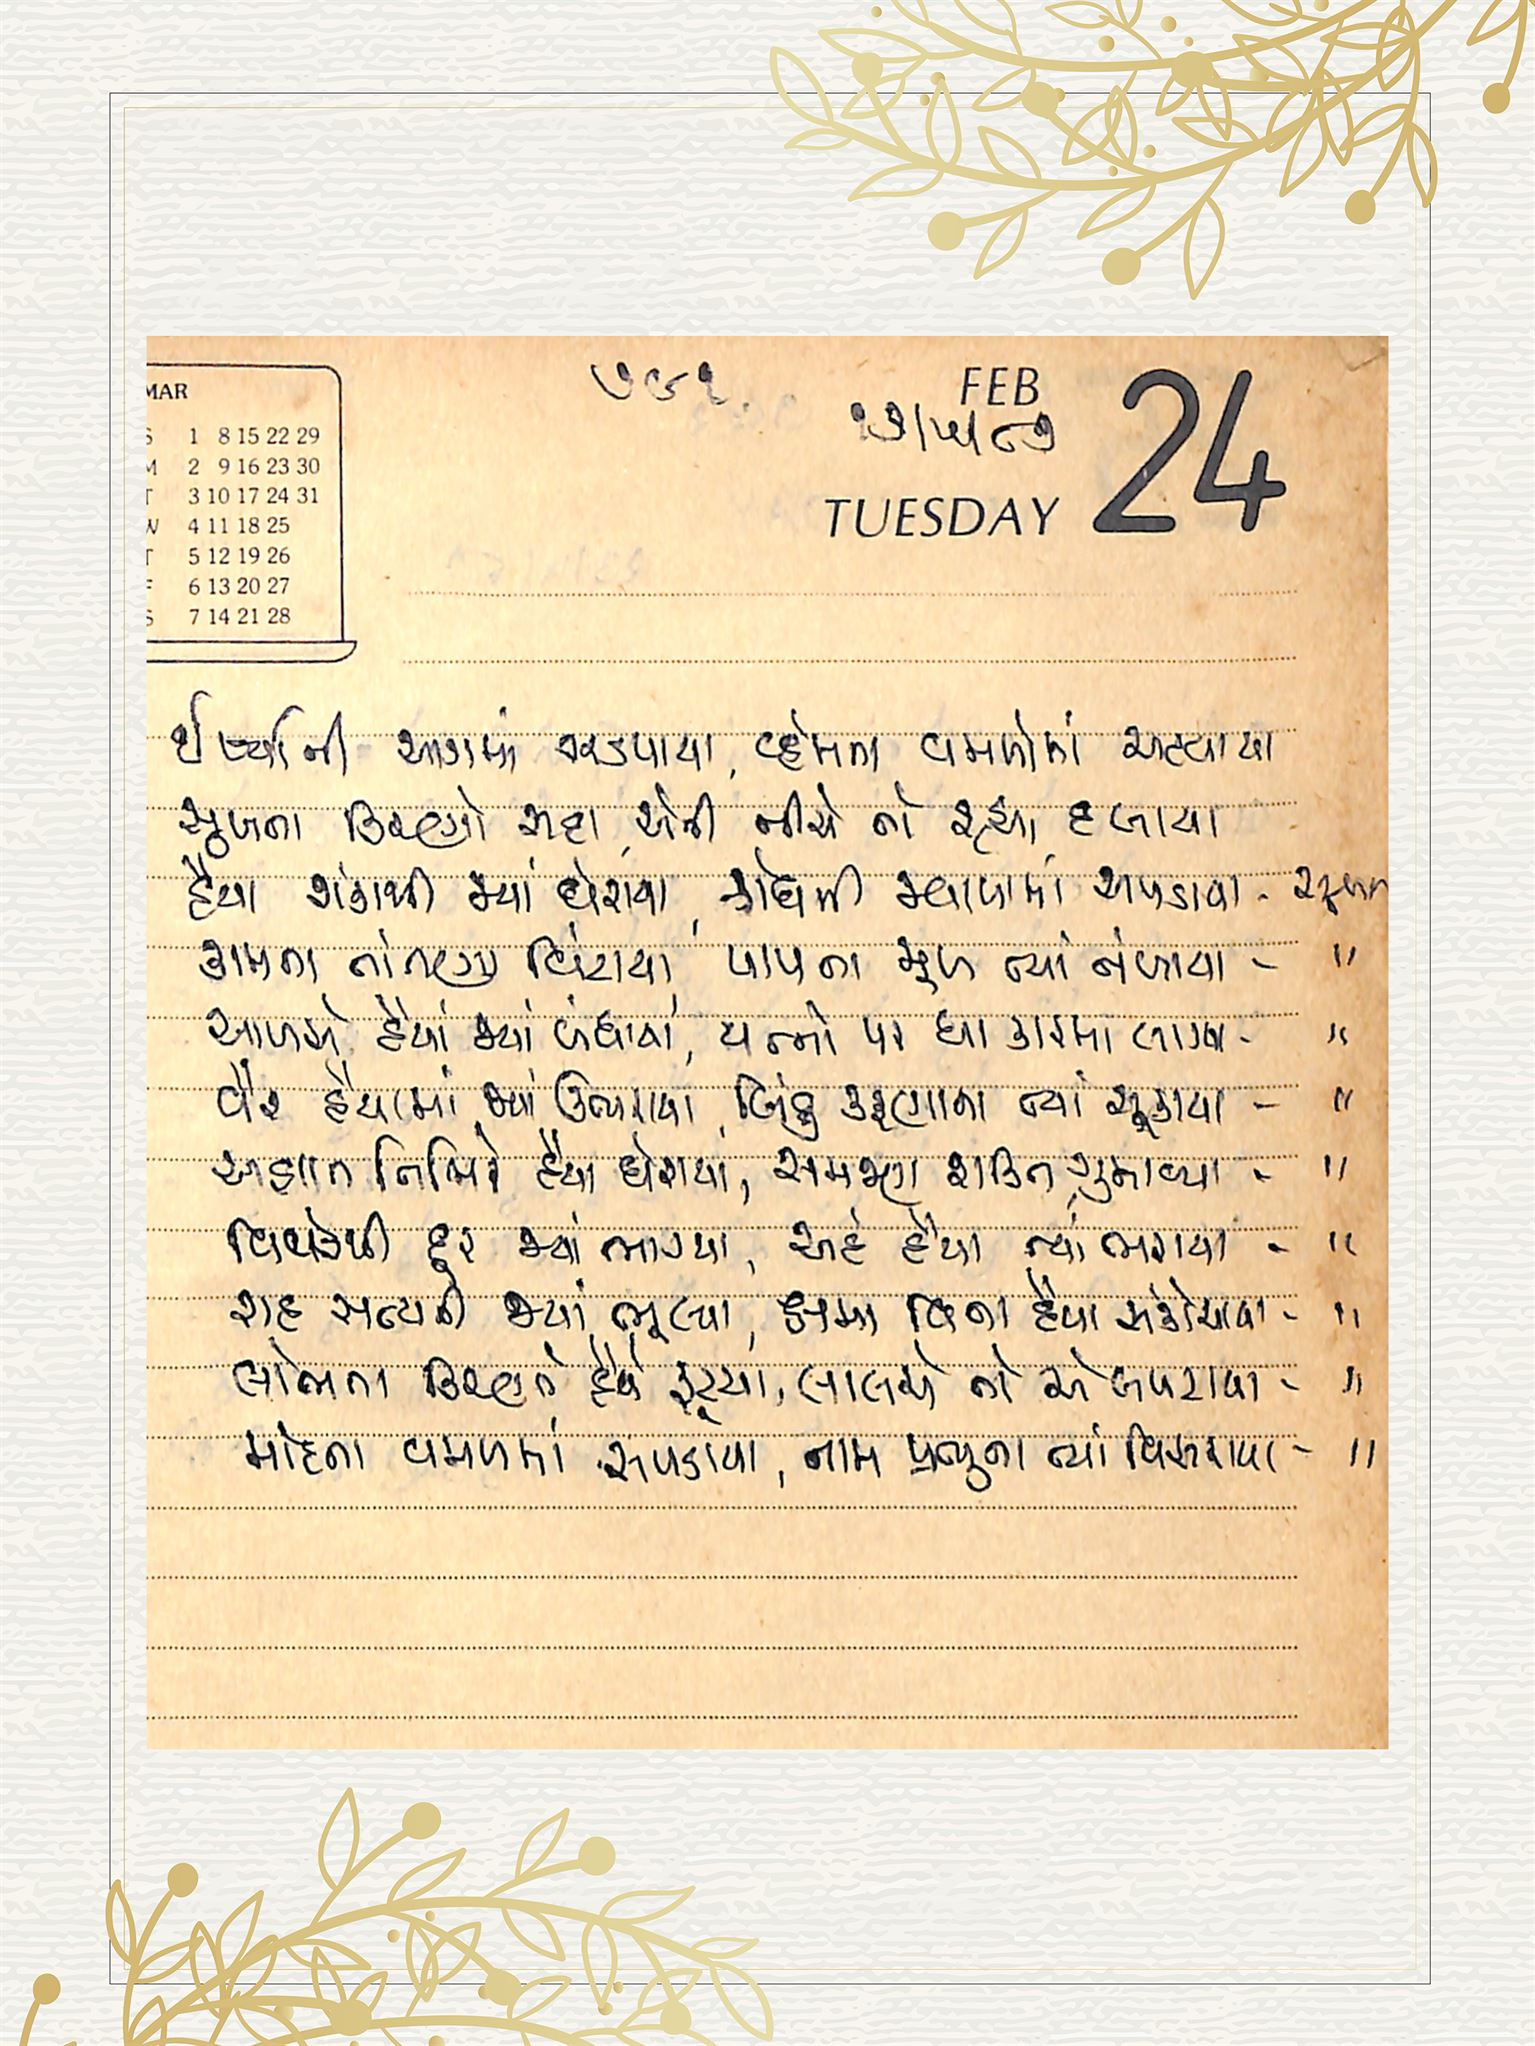 MAR
S 1 8 15 22 29
M 2 9 16 23 30
T 3 10 17 24 31
W 4 11 18 25
T 5 12 19 26
F 6 13 20 27
S 7 14 21 28
૭૯૧
FEB 24
૨૭/૫/૮૭
TUESDAY
ઈર્ષ્યાની આગમાં જ્યાં વ્હેમના વમળોમાં અટવાયા
સુખના કિરણો સદા, એની નીચે તો રહ્યા દબાયા
હૈયા શંકાથી જ્યાં ઘેરાયા, ક્રોધની જ્વાળામાં સપડાયા - સુખના
કામના તાંતણા વિંટાયા, પાપના મૂળ ત્યાં નંખાયા - "
આળસે હૈયાં જ્યાં બંધાયાં, યત્નો પર ઘા કારમા લાગ્યા - "
વૈર હૈયામાં જ્યાં ઉભરાયા, બિંદુ કરૂણાના ત્યાં સૂકાયા - "
અજ્ઞાન તિમિરે હૈયા ઘેરાયાં, સમજણ શક્તિ ગુમાવ્યા - "
વિવેકથી દૂર જ્યાં ભાગ્યા, અહં હૈયા ત્યાં ભરાયા - "
રાહ સત્યની જ્યાં ભૂલ્યા, ક્ષમા વિના હૈયા સંકોચાયા - "
લોભના કિરણને હૈયે ફૂટ્યાં, લાલચે તો એ લપટાયા - "
મોહના વમળમાં સપડાયા, નામ પ્રભુના ત્યાં વિસરાયા - "